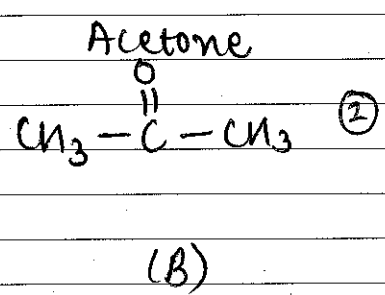 Acetone
O
||
CH3 - C - CH3 (2)
(B)